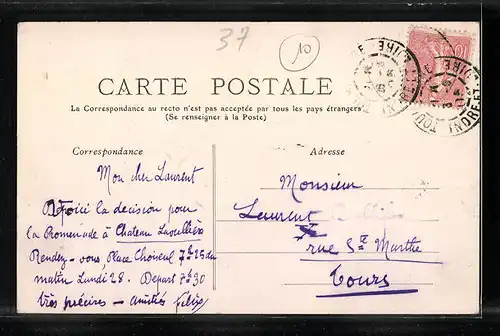 37
10
CARTE POSTALE
La Correspondance au recto n'est pas acceptée par tous les pays étrangers
(Se renseigner à la Poste)
Correspondance
Adresse
Mon cher Laurent
Voici la decision pour
la Promenade à Chateau Lavallière
Rendez-vous Place Choiseul 7h 25 du
matin Lundi 28. Depart 7h 30
très précises — amitiés
Monsieur
Laurent
rue Ste Marthe
Tours
INDRE ET LOIRE